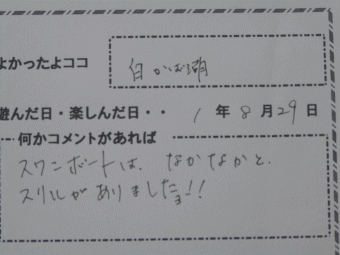 よかったよココ
白かば湖
遊んだ日・楽しんだ日・・ 1年8月29日
何かコメントがあれば
スワンボートは、なかなかと、
スリルがありましたョー!!